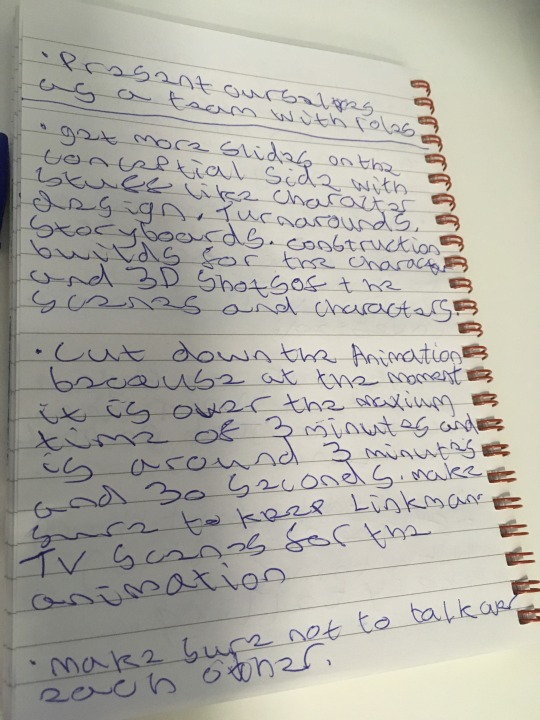 · Present ourselves
as a team with roles
· get more slides on the
conceptial side with
stuff like character
design. Turnarounds.
storyboards. construction
builds for the character
and 3D shots of the
scenes and characters.
· Cut down the Animation
because at the moment
it is over the maxium
time of 3 minutes and
is around 3 minutes
and 30 seconds. make
sure to keep Linkman
TV scenes for the
animation
· make sure not to talk over
each other.